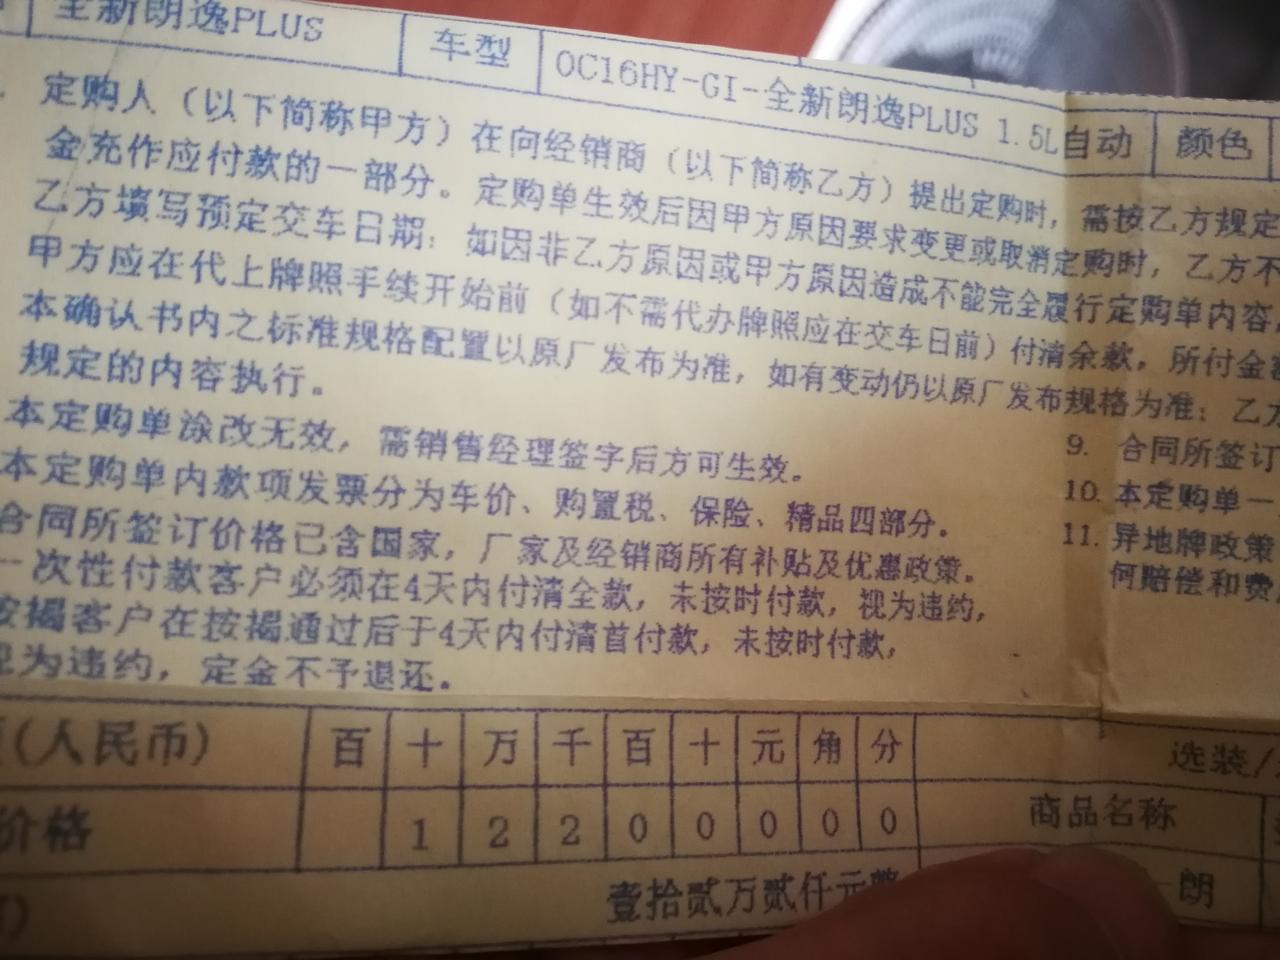 全新朗逸PLUS 车型 OC16HY-GI-全新朗逸PLUS 1.5L自动 颜色
定购人（以下简称甲方）在向经销商（以下简称乙方）提出定购时，需按乙方规定
金充作应付款的一部分。定购单生效后因甲方原因要求变更或取消定购时，乙方不
乙方填写预定交车日期；如因非乙方原因或甲方原因造成不能完全履行定购单内容
甲方应在代上牌照手续开始前（如不需代办牌照应在交车日前）付清余款，所付金
本确认书内之标准规格配置以原厂发布为准，如有变动仍以原厂发布规格为准；乙方
规定的内容执行。
本定购单涂改无效，需销售经理签字后方可生效。
本定购单内款项发票分为车价、购置税、保险、精品四部分。
合同所签订价格已含国家，厂家及经销商所有补贴及优惠政策。
一次性付款客户必须在4天内付清全款，未按时付款，视为违约，
按揭客户在按揭通过后于4天内付清首付款，未按时付款，
视为违约，定金不予退还。
9. 合同所签订
10. 本定购单一
11. 异地牌政策
何赔偿和费
(人民币) 百 十 万 千 百 十 元 角 分 选装/
价格 1 2 2 0 0 0 0 0 商品名称
壹拾贰万贰仟元整 朗